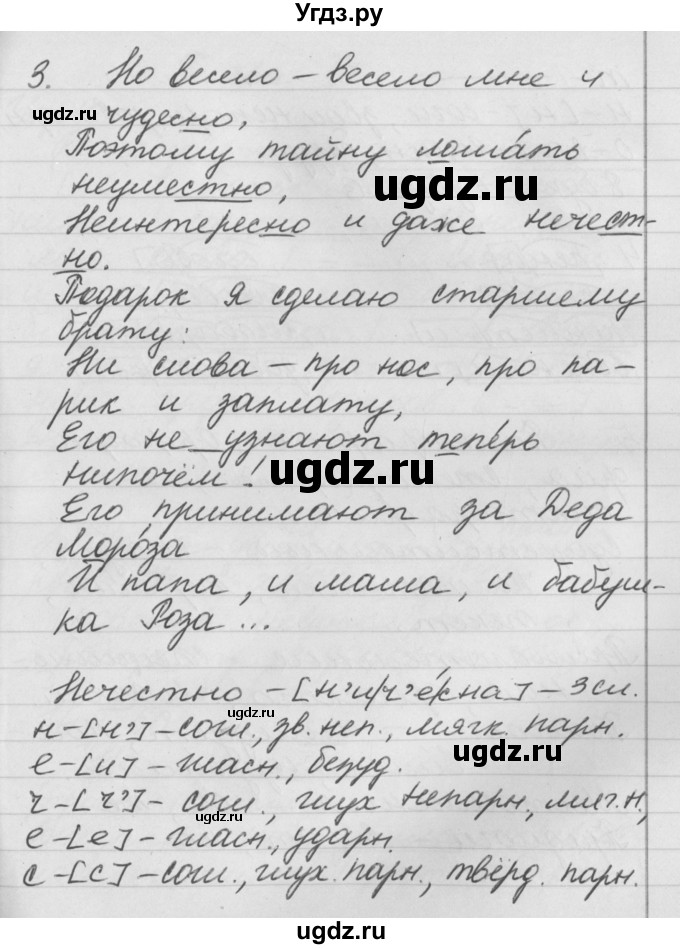 Угдз.ру
3. Но весело – весело мне и
ugdz.ru чудесно,
Поэтому тайну ломать
ugdz.ru
неуместно,
Неинтересно и даже нечест-
но.
Подарок я сделаю старшему
брату:
Ни слова – про нос, про па-
рик и заплату,
Его не узнают теперь
нипочём! ugdz.ru
Его принимают за Деда
Мороза
И папа, и мама, и бабуш-
ка Роза...
Нечестно – [н'и/ч'е́/сна] – 3 сл.
ugdz.ru
н – [н'] – согл., зв. неп., мягк. парн.
ugdz.ru
е – [и] – гласн., безуд.
ч – [ч'] – согл., глух. непарн., мяг. н,
ugdz.ru
е – [е] – гласн., ударн.
с – [с] – согл., глух. парн., твёрд. парн.